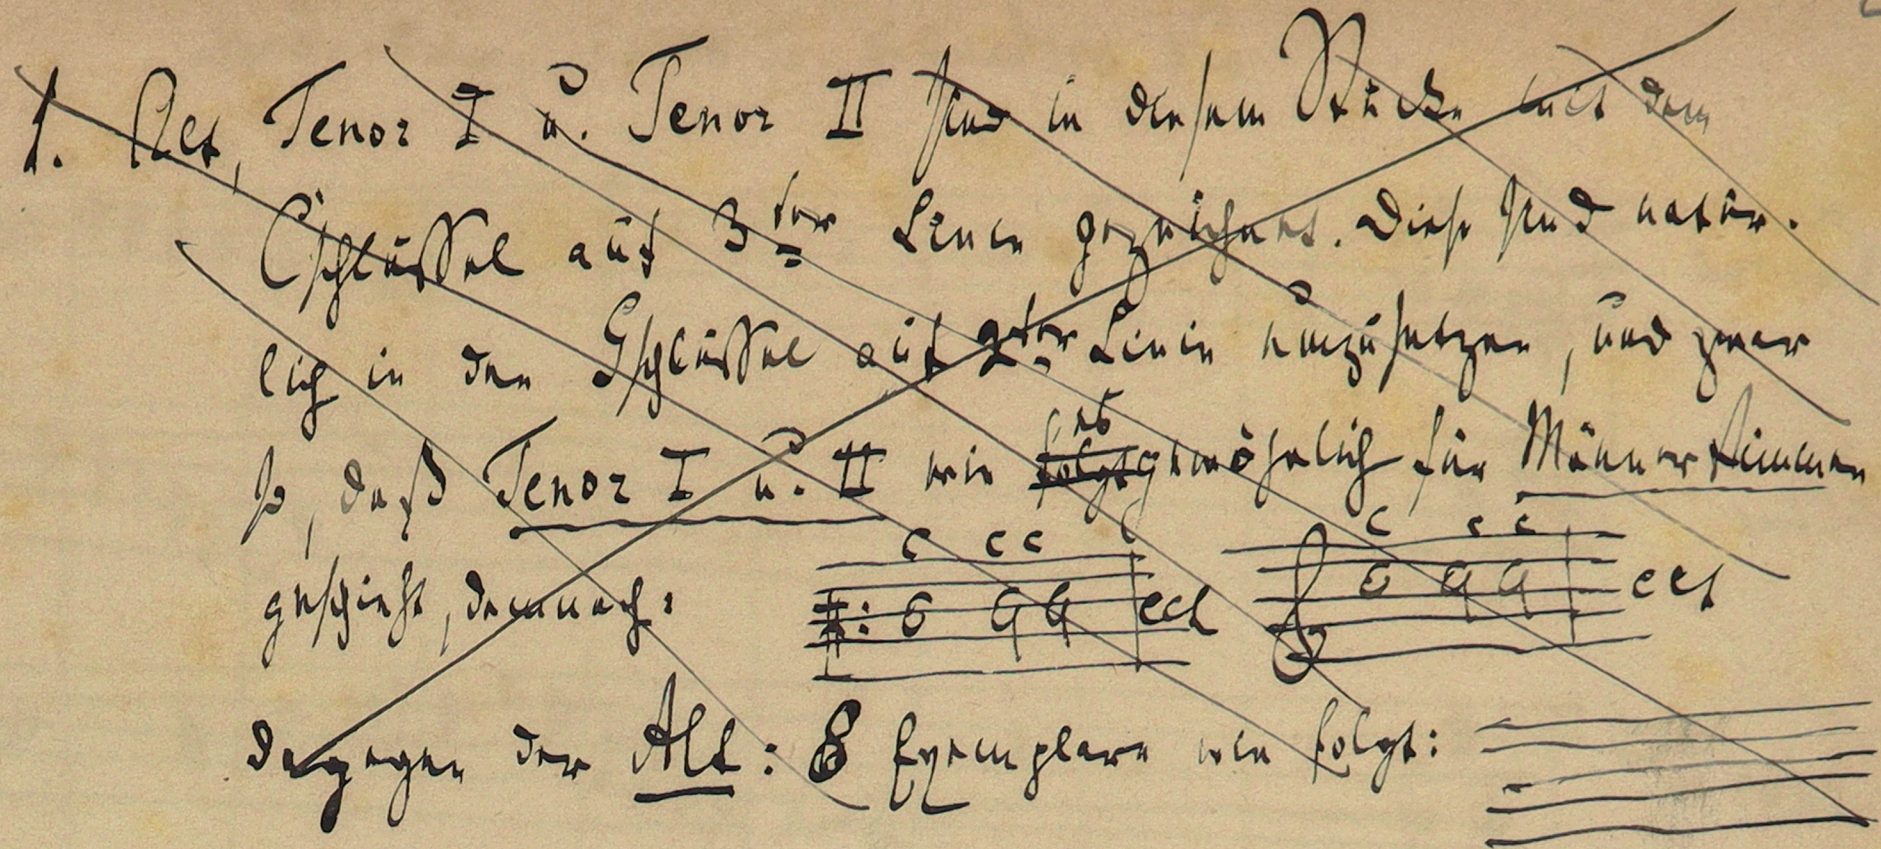 1. Alt, Tenor I u. Tenor II sind in diesem Stücke mit dem
Cschlüssel auf 3ter Linie gezeichnet. Diese sind natür-
lich in den Gschlüssel auf 2ter Linie umzusetzen, und zwar
so, daß Tenor I u. II wie es folgt gewöhnlich für Männerstimmen
geschieht, demnach:
c c c
ect
c c c
ect
dagegen der Alt: 8 Exemplare wie folgt: